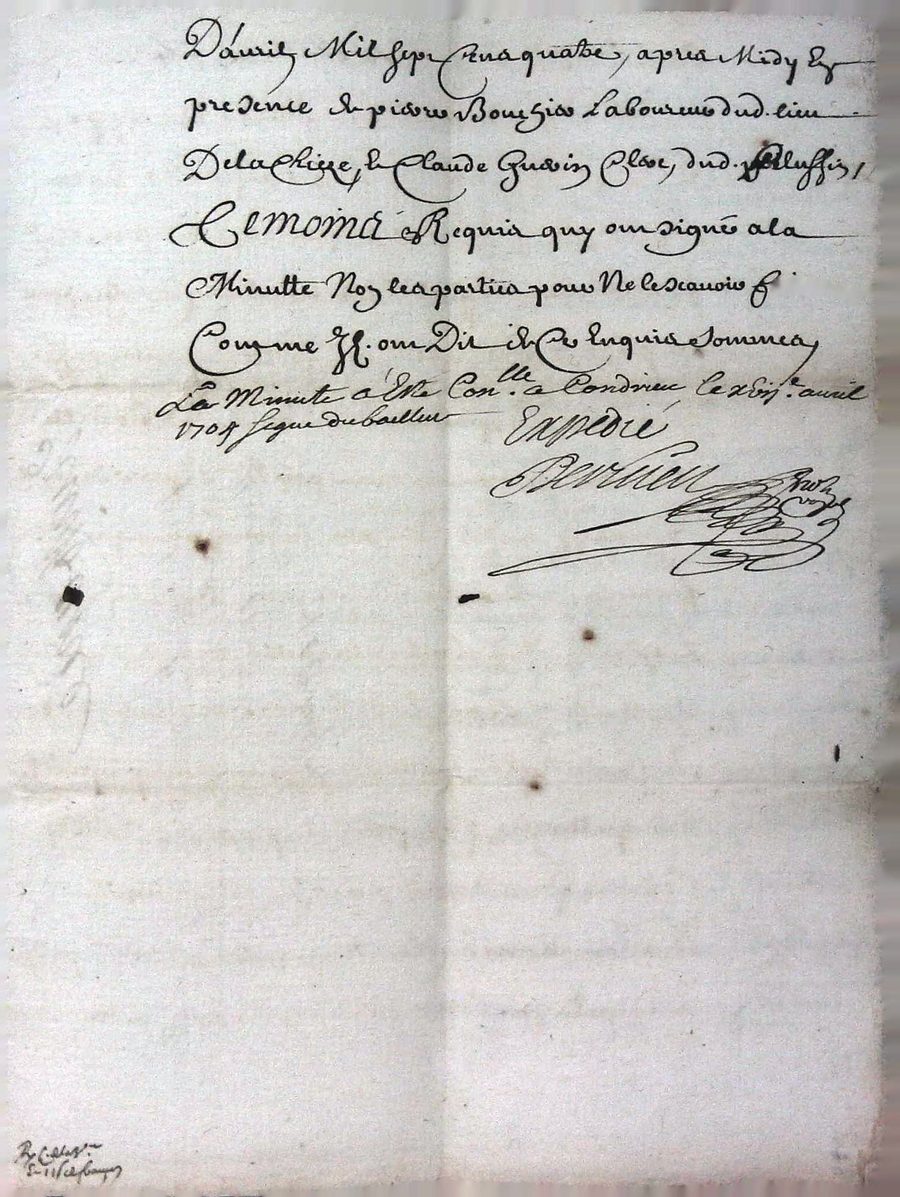 D'avril Mil sept Cens quatre, apres Midy En
presence de pierre Bouchier Laboureur dud. lieu
De la Chieze, & Claude Guerin Clerc, dud. Pelussin,
Temoins Requis quy ont signé a la
Minutte Non les parties pour Ne le scavoir
Comme Ils ont Dit de Ce Enquis & sommes
La Minute a Esté Con.lle a Condrieu le avril
1704 signe du bailleur
Expedié